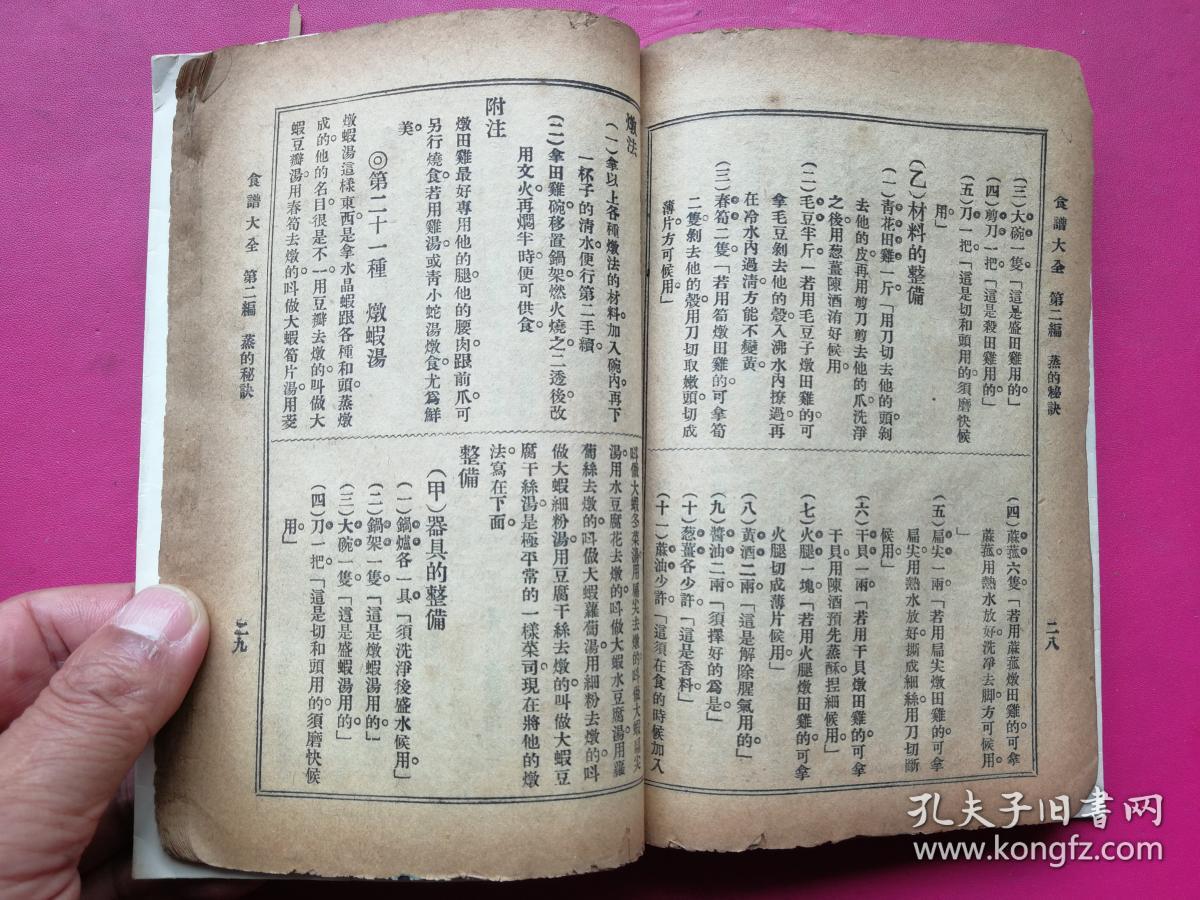 食譜大全　第二編　蒸的秘訣
二八
（三）大碗一隻「這是盛田雞用的」
（四）剪刀一把「這是殺田雞用的」
（五）刀一把「這是切和頭用的須磨快候
用」
（乙）材料的整備
（一）靑花田雞一斤「用刀切去他的頭剝
去他的皮再用剪刀剪去他的爪洗淨
之後用葱薑陳酒淯好候用
（二）毛豆半斤「若用毛豆子燉田雞的可
拿毛豆剝去他的殼入沸水內撩過再
在冷水內過淸方能不變黃
（三）春筍二隻「若用筍燉田雞的可拿筍
二隻剝去他的殼用刀切取嫩頭切成
薄片方可候用」
（四）蔴菰六隻「若用蔴菰燉田雞的可拿
蔴菰用熱水放好洗淨去脚方可候用
」
（五）扁尖一兩「若用扁尖燉田雞的可拿
扁尖用熱水放好撕成細絲用刀切斷
候用」
（六）干貝一兩「若用干貝燉田雞的可拿
干貝用陳酒預先蒸酥揑細候用」
（七）火腿一塊「若用火腿燉田雞的可拿
火腿切成薄片候用」
（八）黃酒二兩「這是解除腥氣用的」
（九）醬油二兩「須擇好的爲是」
（十）葱薑各少許「這是香料」
（十一）蔴油少許「這須在食的時候加入
燉法
（一）拿以上各種燉法的材料加入碗內再下
一杯子的淸水便行第二手續
（二）拿田雞碗移置鍋架燃火燒之二透後改
用文火再燜半時便可供食
附注
燉田雞最好專用他的腿他的腰肉跟前爪可
另行燒食若用雞湯或靑小蛇湯燉食尤爲鮮
美
◎第二十一種　燉蝦湯
燉蝦湯這樣東西是拿水晶蝦跟各種和頭蒸燉
成的他的名目很是不一用豆瓣去燉的叫做大
蝦豆瓣湯用春筍去燉的叫做大蝦筍片湯用菱
食譜大全　第二編　蒸的秘訣
二九
叫做大蝦冬菜湯用扁尖去燉的叫做大蝦扁尖
湯用水豆腐花去燉的叫做大蝦水豆腐湯用蘿
蔔絲去燉的叫做大蝦蘿蔔湯用細粉去燉的叫
做大蝦細粉湯用豆腐干絲去燉的叫做大蝦豆
腐干絲湯是極平常的一樣菜司現在將他的燉
法寫在下面
整備
（甲）器具的整備
（一）鍋爐各一具「須洗淨後盛水候用」
（二）鍋架一隻「這是燉蝦湯用的」
（三）大碗一隻「這是盛蝦湯用的」
（四）刀一把「這是切和頭用的須磨快候
用」
孔夫子旧書网
www.kongfz.com